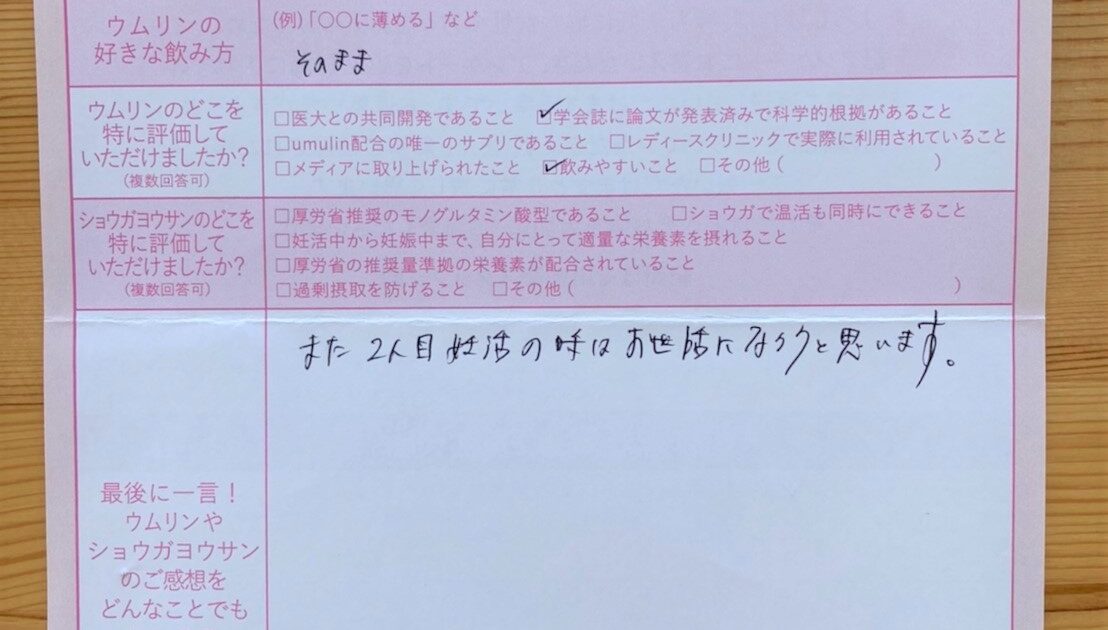 ウムリンの
好きな飲み方
(例)「〇〇に薄める」など
そのまま
ウムリンのどこを
特に評価して
いただけましたか?
(複数回答可)
□医大との共同開発であること ☑学会誌に論文が発表済みで科学的根拠があること
□umulin配合の唯一のサプリであること □レディースクリニックで実際に利用されていること
□メディアに取り上げられたこと ☑飲みやすいこと □その他( )
ショウガヨウサンのどこを
特に評価して
いただけましたか?
(複数回答可)
□厚労省推奨のモノグルタミン酸型であること □ショウガで温活も同時にできること
□妊活中から妊娠中まで、自分にとって適量な栄養素を摂れること
□厚労省の推奨量準拠の栄養素が配合されていること
□過剰摂取を防げること □その他( )
また2人目妊活の時はお世話になろうと思います。
最後に一言!
ウムリンや
ショウガヨウサン
のご感想を
どんなことでも